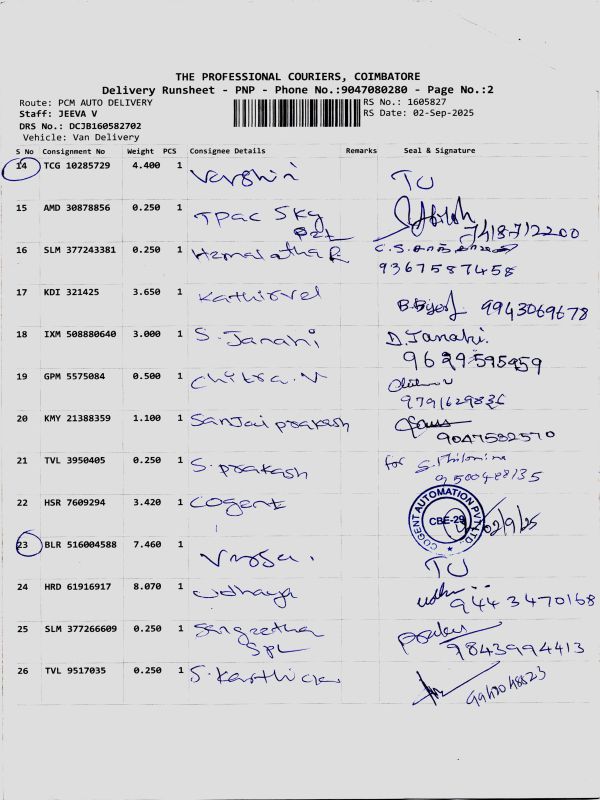 THE PROFESSIONAL COURIERS, COIMBATORE
Delivery Runsheet - PNP - Phone No.:9047080280 - Page No.:2
Route: PCM AUTO DELIVERY
RS No.: 1605827
Staff: JEEVA V
RS Date: 02-Sep-2025
DRS No.: DCJB160582702
Vehicle: Van Delivery
S No Consignment No Weight PCS Consignee Details Remarks Seal & Signature
14 TCG 10285729 4.400 1 Varshini TU
15 AMD 30878856 0.250 1 TPAC Sky
7418712200
16 SLM 377243381 0.250 1 Hemalatha R C.S.
9367587458
17 KDI 321425 3.650 1 Kathirvel 9943069678
18 IXM 508880640 3.000 1 S. Janaki D. Janaki.
9629595959
19 GPM 5575084 0.500 1 Chitra. V
9791629836
20 KMY 21388359 1.100 1 Sanjai prakash
9047582570
21 TVL 3950405 0.250 1 S. prakash for S. Philomina
9500488135
22 HSR 7609294 3.420 1 Cogent COGENT AUTOMATION PVT LTD. CBE-29 02/9/25
23 BLR 516004588 7.460 1 TU
24 HRD 61916917 8.070 1 Udhaya
9443470168
25 SLM 377266609 0.250 1 Sangeetha
SPL 9843994413
26 TVL 9517035 0.250 1 S. Karthick